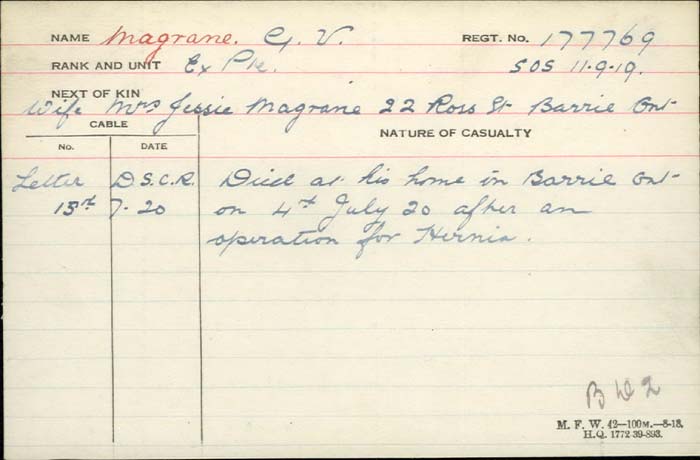 NAME Magrane. G. V. REGT. No. 177769
RANK AND UNIT Ex Pte. SOS 11-9-19.
NEXT OF KIN
Wife Mrs Jessie Magrane 22 Ross St Barrie Ont
CABLE NATURE OF CASUALTY
No. DATE
Letter D.S.C.R. Died at his home in Barrie Ont
13th 7-20 on 4th July 20 after an
operation for Hernia.
M. F. W. 42—100M.—8-18.
H.Q. 1772-39-893.